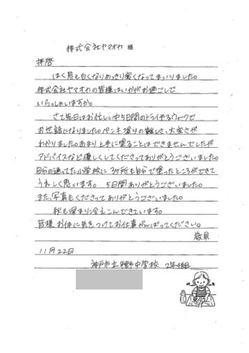 株式会社ヤマオカ 様
拝啓
はく息も白くなりめっきり寒くなってまいりました。
株式会社ヤマオカの皆様はいかがお過ごしで
いらっしゃいますか。
さて先日はお忙しい中5日間のトライやるワークで
お世話になりました。ペンキ塗りの難しさ、大変さが
わかりました。あまり上手に塗ることはできませんでしたが
アドバイスなど優しくしてくださってありがとうございました。
自分の通ってた小学校に
うれしく思います。5日間ありがとうございました。
また、写真もくださってありがとうございました。
皆様お体に気をつけてお仕事がんばってください。
敬具
11月22日
中学校 2年